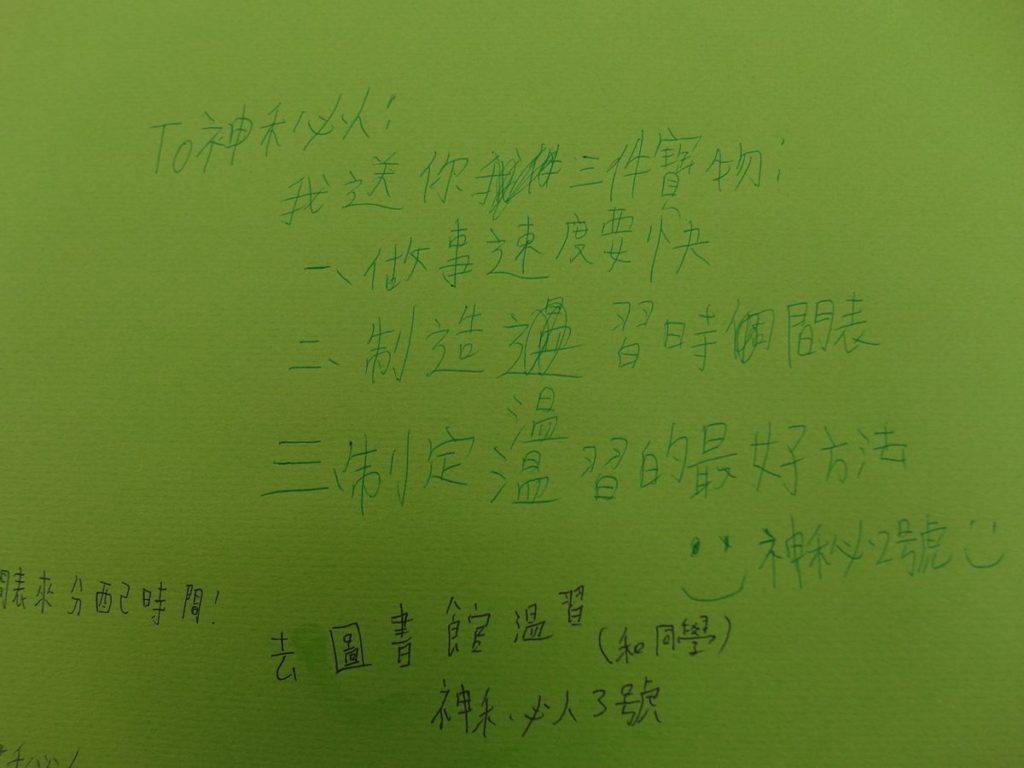 To神秘人：
我送你三件寶物：
一、做事速度要快
二、制造 習時間表
溫
三、制定溫習的最好方法
神秘2號
表來分配時間！
去圖書館溫習（和同學）
神秘人3號